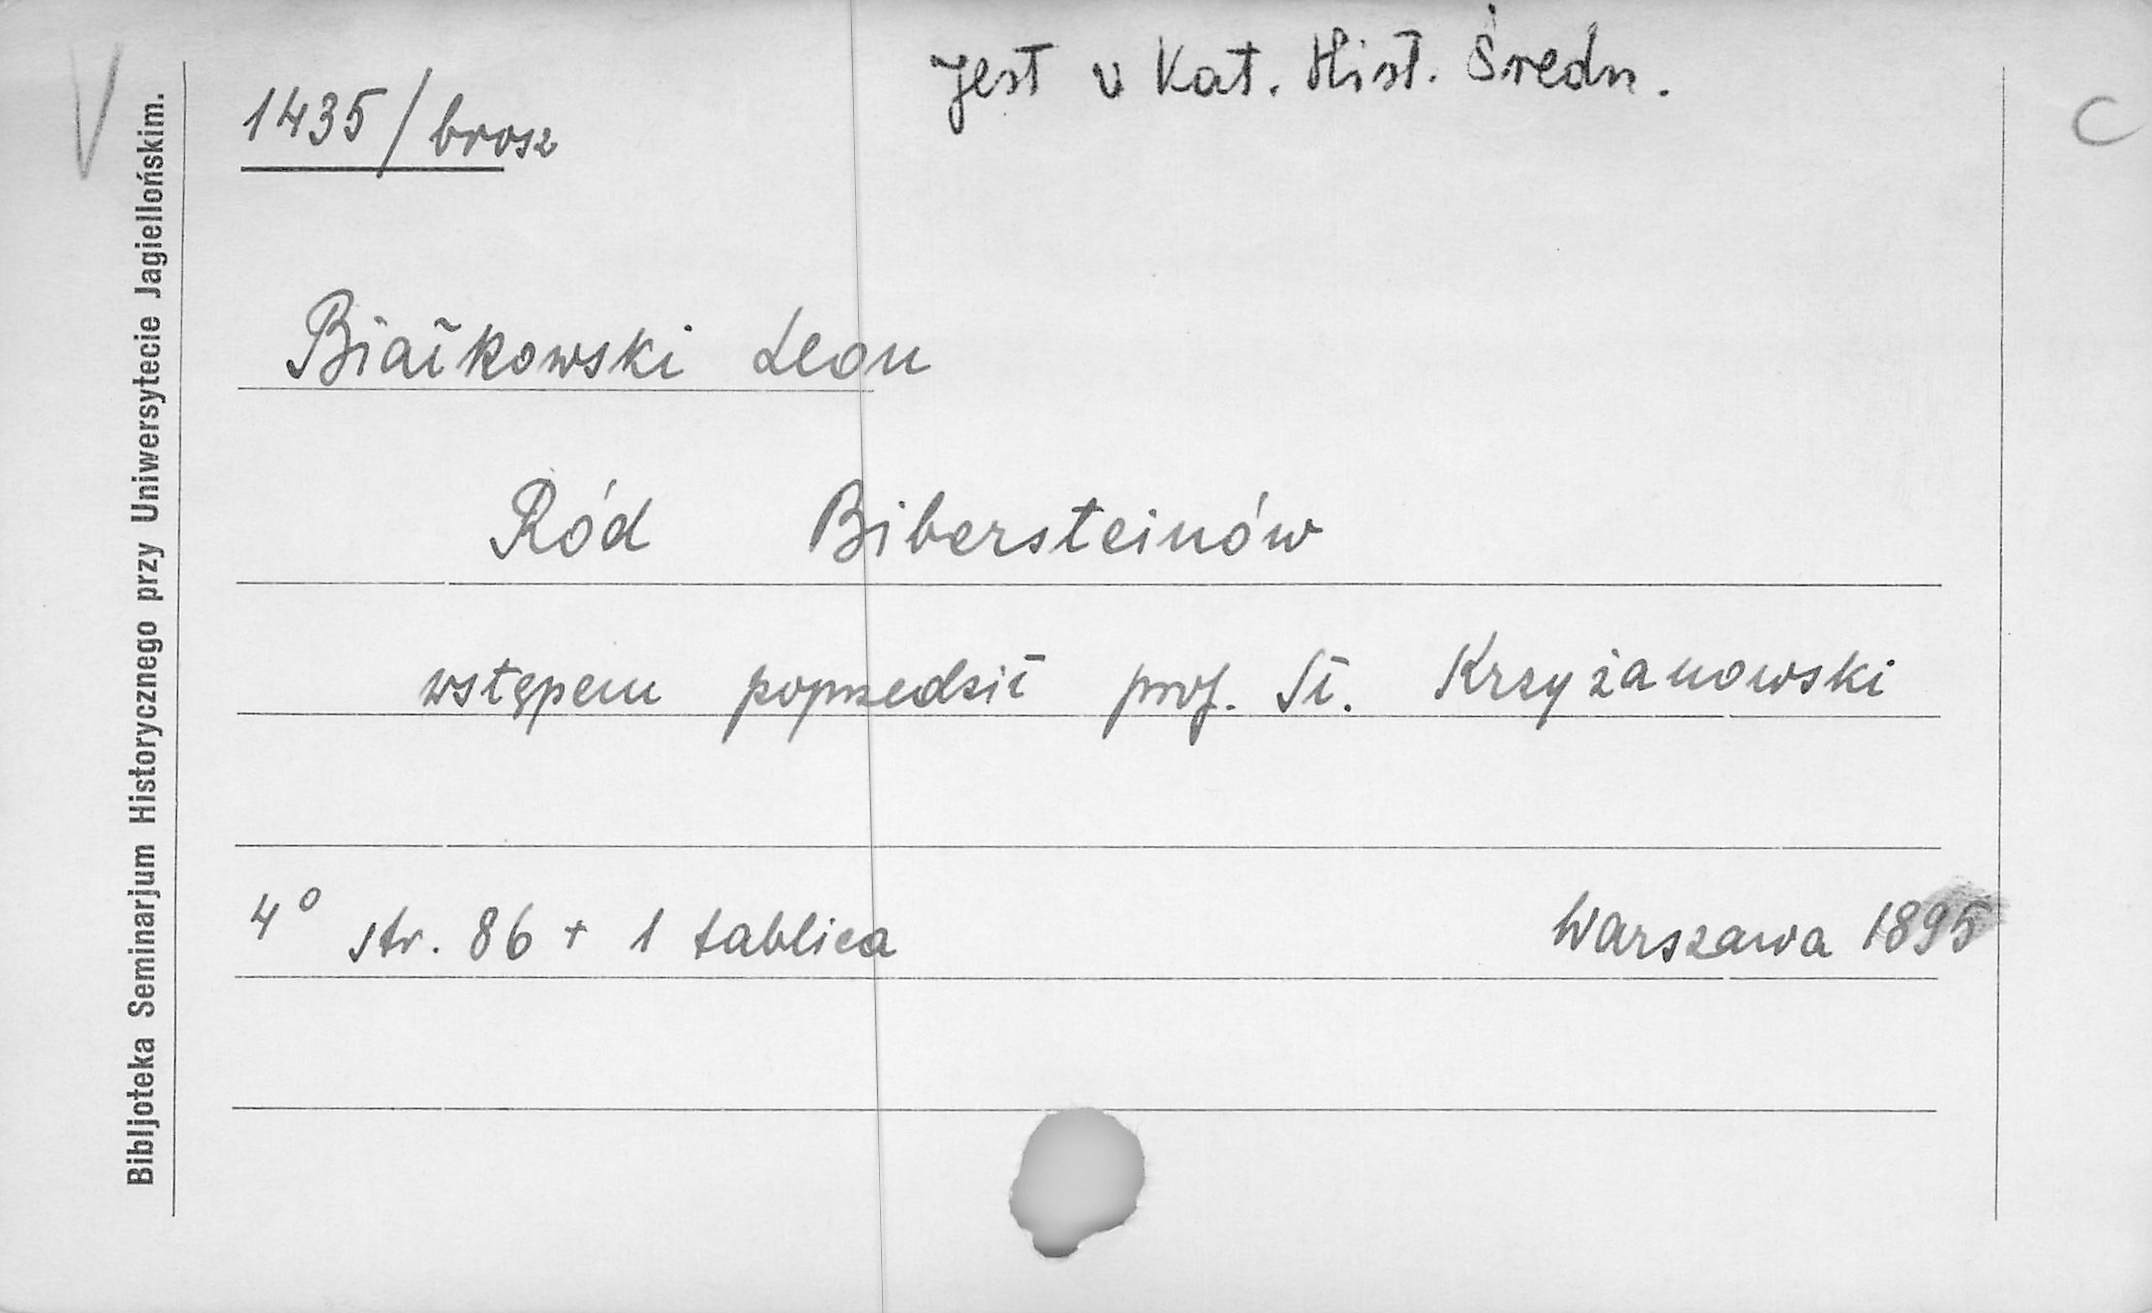 V
Jest w Kat. Hist. Średn.
C
1435/brosz
Białkowski Leon
Ród Bibersteinów
wstępem poprzedził prof. St. Krzyżanowski
4° str. 86 + 1 tablica Warszawa 1895
Bibljoteka Seminarjum Historycznego przy Uniwersytecie Jagiellońskim.